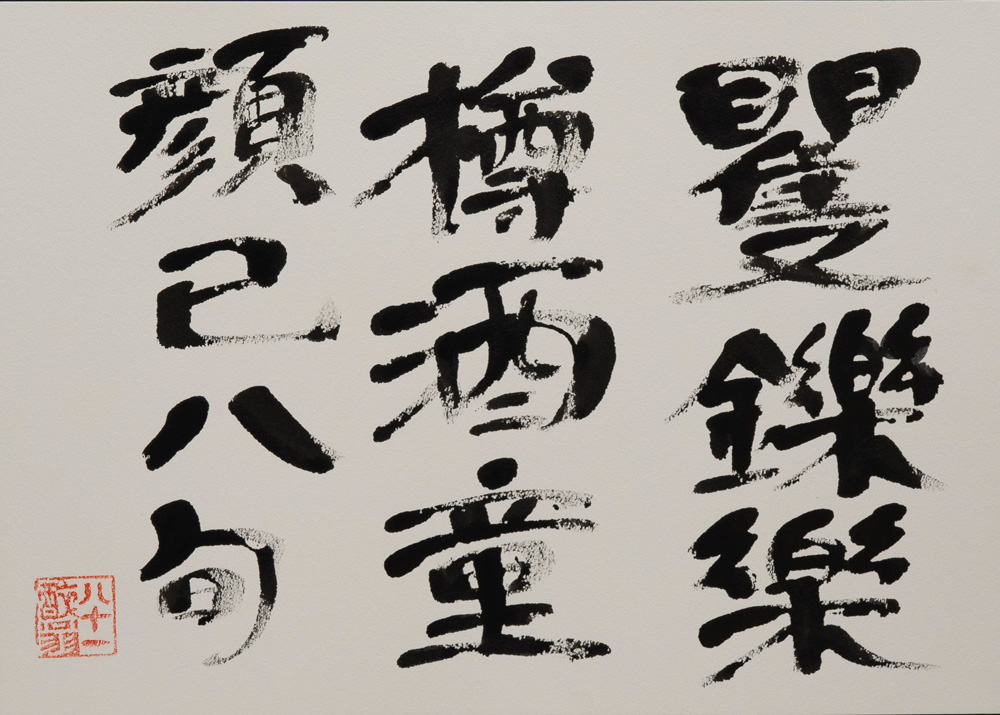 矍鑠樂
樽酒童
顔已八旬
八十一
醉翁